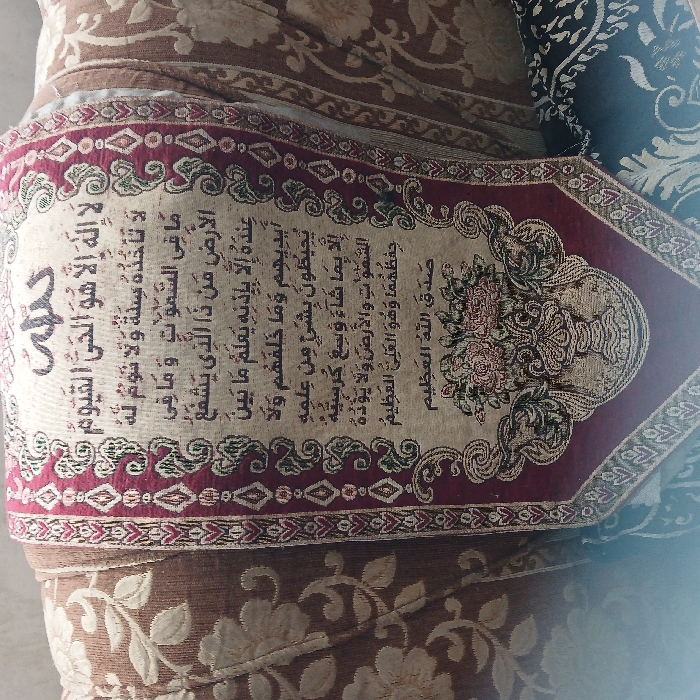 لا إله إلا هو الحي القيوم
لا تأخذه سنة ولا نوم له
ما في السموات وما في
الأرض من ذا الذي يشفع
عنده إلا بإذنه يعلم ما بين
أيديهم وما خلفهم ولا
يحيطون بشئ من علمه
إلا بما شاء وسع كرسيه
السموات والأرض ولا يؤده
حفظهما وهو العلي العظيم
صدق الله العظيم